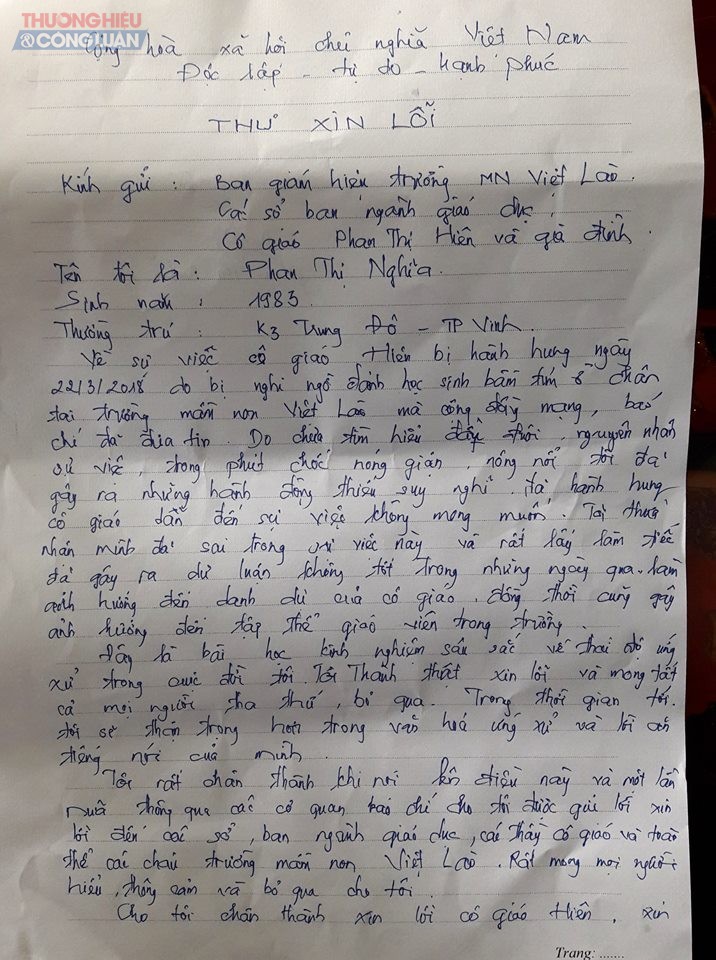 THUONGHIEU
&CÔNGLUẬN
Cộng hoà xã hội chủ nghĩa Việt Nam
Độc lập - tự do - Hạnh phúc
THƯ XIN LỖI
Kính gửi : Ban giám hiệu trường MN Việt Lào.
Các sở ban ngành giáo dục.
Cô giáo Phan Thị Hiền và gia đình.
Tên tôi là : Phan Thị Nghĩa.
Sinh năm : 1983
Thường trú : K3 Trung Đô - TP Vinh.
Về sự việc cô giáo Hiền bị hành hung ngày
22/3/2018 do bị nghi ngờ đánh học sinh bầm tím ở chân
tại trường mầm non Việt Lào mà cộng đồng mạng, báo
chí đã đưa tin. Do chưa tìm hiểu nguyên nhân
sự việc, trong phút chốc nóng giận, nông nổi tôi đã
gây ra những hành động thiếu suy nghĩ. đã hành hung
cô giáo dẫn đến sự việc không mong muốn. Tôi
nhận mình đã sai trong sự việc này và rất lấy làm tiếc
đã gây ra dư luận không tốt trong những ngày qua. làm
ảnh hưởng đến danh dự của cô giáo. đồng thời cũng gây
ảnh hưởng đến tập thể giáo viên trong trường.
Đây là bài học kinh nghiệm sâu sắc về thái độ ứng
xử trong cuộc đời tôi. Tôi Thành thật xin lỗi và mong tất
cả mọi người tha thứ, bỏ qua. Trong thời gian tới.
tôi sẽ thận trọng hơn trong văn hoá ứng xử và lời ăn
tiếng nói của mình.
Tôi rất chân thành khi nói lên điều này và một lần
nữa thông qua các cơ quan báo chí cho tôi được gửi lời xin
lỗi đến các sở, ban ngành giáo dục, các thầy cô giáo và toàn
thể các cháu trường mầm non Việt Lào. Rất mong mọi người
hiểu, thông cảm và bỏ qua cho tôi.
Cho tôi chân thành xin lỗi cô giáo Hiền, xin
Trang: .......